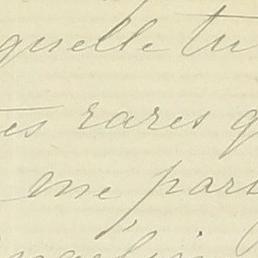 quelle tu
es rares q
me part